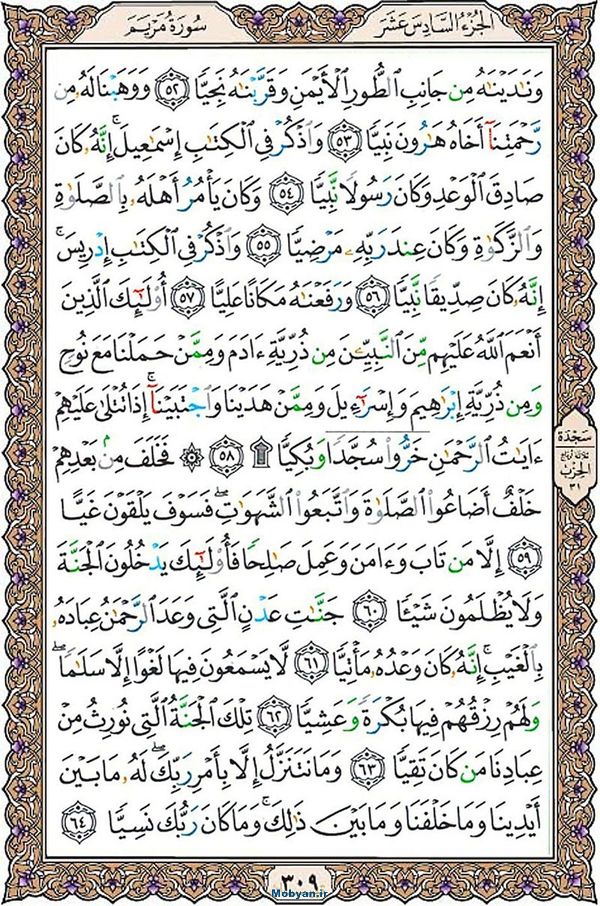 الجُزءُ السَّادِسَ عَشَرَ
سُورَةُ مَرْيَمَ
وَنَٰدَيْنَٰهُ مِن جَانِبِ ٱلطُّورِ ٱلْأَيْمَنِ وَقَرَّبْنَٰهُ نَجِيًّا ٥٢ وَوَهَبْنَا لَهُۥ مِن
رَّحْمَتِنَآ أَخَاهُ هَٰرُونَ نَبِيًّا ٥٣ وَٱذْكُرْ فِى ٱلْكِتَٰبِ إِسْمَٰعِيلَ ۚ إِنَّهُۥ كَانَ
صَادِقَ ٱلْوَعْدِ وَكَانَ رَسُولًا نَّبِيًّا ٥٤ وَكَانَ يَأْمُرُ أَهْلَهُۥ بِٱلصَّلَوٰةِ
وَٱلزَّكَوٰةِ وَكَانَ عِندَ رَبِّهِۦ مَرْضِيًّا ٥٥ وَٱذْكُرْ فِى ٱلْكِتَٰبِ إِدْرِيسَ ۚ
إِنَّهُۥ كَانَ صِدِّيقًا نَّبِيًّا ٥٦ وَرَفَعْنَٰهُ مَكَانًا عَلِيًّا ٥٧ أُو۟لَٰٓئِكَ ٱلَّذِينَ
أَنْعَمَ ٱللَّهُ عَلَيْهِم مِّنَ ٱلنَّبِيِّـۧنَ مِن ذُرِّيَّةِ ءَادَمَ وَمِمَّنْ حَمَلْنَا مَعَ نُوحٍ
وَمِن ذُرِّيَّةِ إِبْرَٰهِيمَ وَإِسْرَٰٓءِيلَ وَمِمَّنْ هَدَيْنَا وَٱجْتَبَيْنَآ ۚ إِذَا تُتْلَىٰ عَلَيْهِمْ
ءَايَٰتُ ٱلرَّحْمَٰنِ خَرُّوا۟ سُجَّدًا وَبُكِيًّا ۩ ٥٨ ۞ فَخَلَفَ مِنۢ بَعْدِهِمْ
سَجْدَة
ثلاثة أرباع
الحِزب
٣١
خَلْفٌ أَضَاعُوا۟ ٱلصَّلَوٰةَ وَٱتَّبَعُوا۟ ٱلشَّهَوَٰتِ ۖ فَسَوْفَ يَلْقَوْنَ غَيًّا
٥٩ إِلَّا مَن تَابَ وَءَامَنَ وَعَمِلَ صَٰلِحًا فَأُو۟لَٰٓئِكَ يَدْخُلُونَ ٱلْجَنَّةَ
وَلَا يُظْلَمُونَ شَيْـًٔا ٦٠ جَنَّٰتِ عَدْنٍ ٱلَّتِى وَعَدَ ٱلرَّحْمَٰنُ عِبَادَهُۥ
بِٱلْغَيْبِ ۚ إِنَّهُۥ كَانَ وَعْدُهُۥ مَأْتِيًّا ٦١ لَّا يَسْمَعُونَ فِيهَا لَغْوًا إِلَّا سَلَٰمًا ۖ
وَلَهُمْ رِزْقُهُمْ فِيهَا بُكْرَةً وَعَشِيًّا ٦٢ تِلْكَ ٱلْجَنَّةُ ٱلَّتِى نُورِثُ مِنْ
عِبَادِنَا مَن كَانَ تَقِيًّا ٦٣ وَمَا نَتَنَزَّلُ إِلَّا بِأَمْرِ رَبِّكَ ۖ لَهُۥ مَا بَيْنَ
أَيْدِينَا وَمَا خَلْفَنَا وَمَا بَيْنَ ذَٰلِكَ ۚ وَمَا كَانَ رَبُّكَ نَسِيًّا ٦٤
٣٠٩
Mobyan.ir